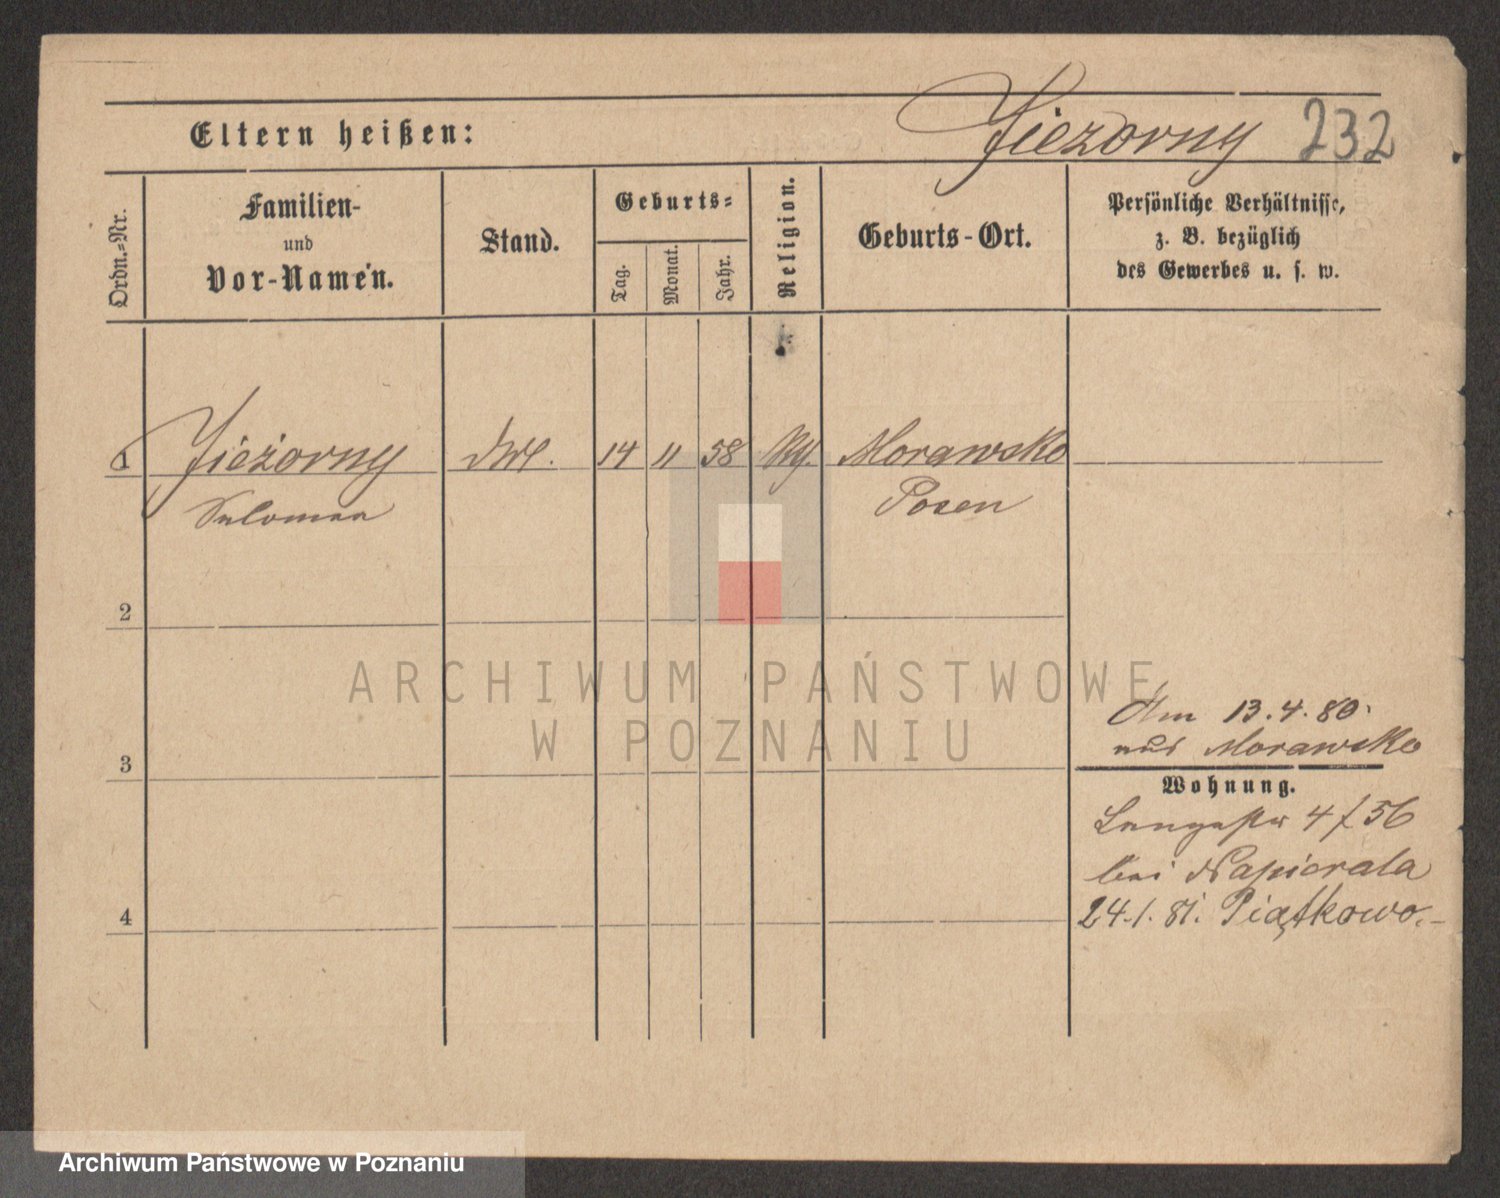 Jiezorny 232
Eltern heißen:
Ordn.-Nr.
Familien-
und
Vor-Namen.
Stand.
Geburts-
Tag.
Monat.
Jahr.
Religion.
Geburts-Ort.
Persönliche Verhältnisse,
z. B. bezüglich
des Gewerbes u. s. w.
1 Jieżorny 14 11 58 Morawsko
Salomea Posen
2
3
4
Am 13.4.80.
aus Morawsko
Wohnung.
Langestr 4/56
bei Napierala
24.1.81. Piątkowo.
ARCHIWUM PAŃSTWOWE
W POZNANIU
Archiwum Państwowe w Poznaniu